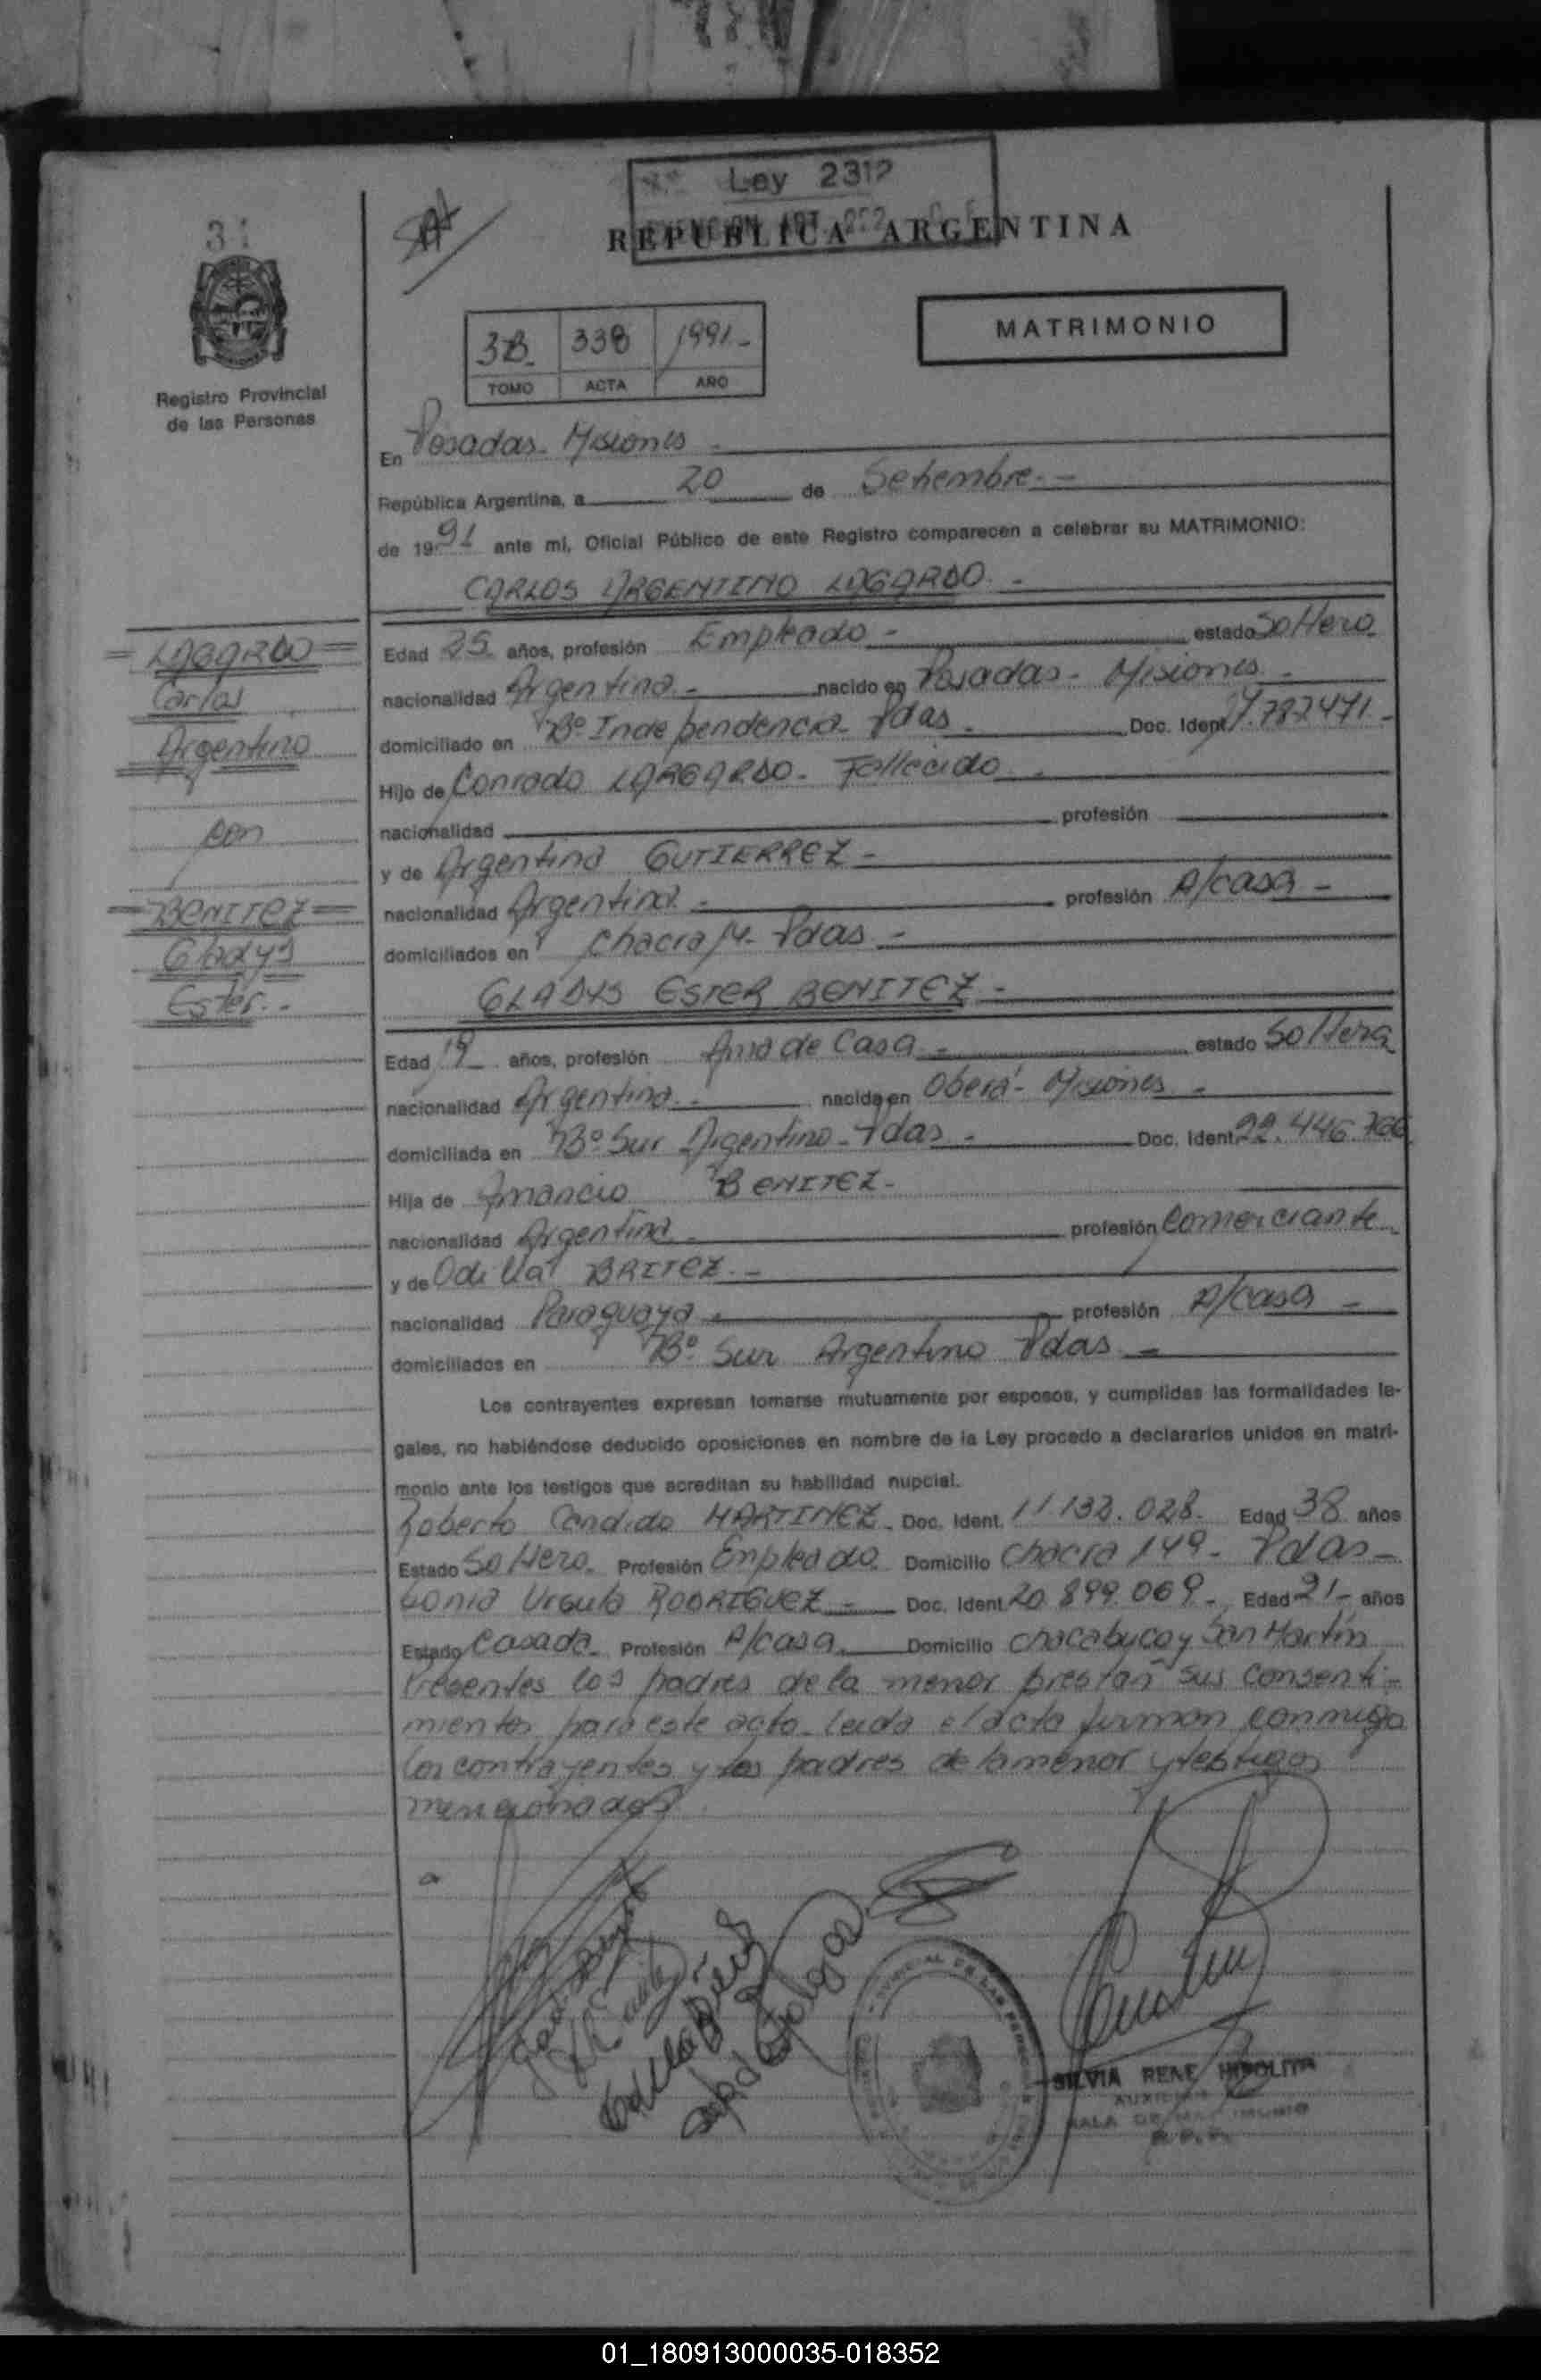 Ley 2312
REPUBLICA ARGENTINA
31
Registro Provincial
de las Personas
3B. 338 1991.-
TOMO ACTA AÑO
MATRIMONIO
En Posadas- Misiones -
República Argentina, a 20 de Setiembre.-
de 1991 ante mí, Oficial Público de este Registro comparecen a celebrar su MATRIMONIO:
CARLOS ARGENTINO LAGARDO. -
= LAGARDO =
Carlos
Argentino
con
= BENITEZ =
Gladys
Ester.-
Edad 25 años, profesión Empleado - estado Soltero
nacionalidad Argentina.- nacido en Posadas- Misiones.-
domiciliado en Bº Independencia- Pdas. Doc. Ident. 7.787.471.-
Hijo de Conrado LARGARDO- Fallecido -
nacionalidad profesión
y de Argentina GUTIERREZ -
nacionalidad Argentina.- profesión A/casa -
domiciliados en Chacra Pdas -
GLADYS ESTER BENITEZ -
Edad 19 años, profesión Ama de Casa - estado Soltera
nacionalidad Argentina.- nacida en Oberá- Misiones -
domiciliada en Bº Sur Argentino- Pdas - Doc. Ident. 22.446.766
Hija de Amancio BENITEZ-
nacionalidad Argentina - profesión Comerciante
y de Odilla BRITEZ.-
nacionalidad Paraguaya - profesión A/casa -
domiciliados en Bº Sur Argentino Pdas -
Los contrayentes expresan tomarse mutuamente por esposos, y cumplidas las formalidades le-
gales, no habiéndose deducido oposiciones en nombre de la Ley procedo a declararlos unidos en matri-
monio ante los testigos que acreditan su habilidad nupcial.
Roberto Candido MARTINEZ Doc. Ident. 11.132.028. Edad 38 años
Estado Soltero. Profesión Empleado Domicilio Chacra 149- Pdas-
Sonia Ursula RODRIGUEZ - Doc. Ident. 20.899.069- Edad 21- años
Estado Casada Profesión A/casa Domicilio Chacabuco y San Martín
Presentes los padres de la menor prestan sus consenti-
mientos para este acto- leida el acta firman conmigo
los contrayentes y los padres de la menor y testigos
mencionados.
SILVIA RENE HIPOLITA
AUXILIAR
SALA DE MATRIMONIO
R.P.P.
01_180913000035-018352